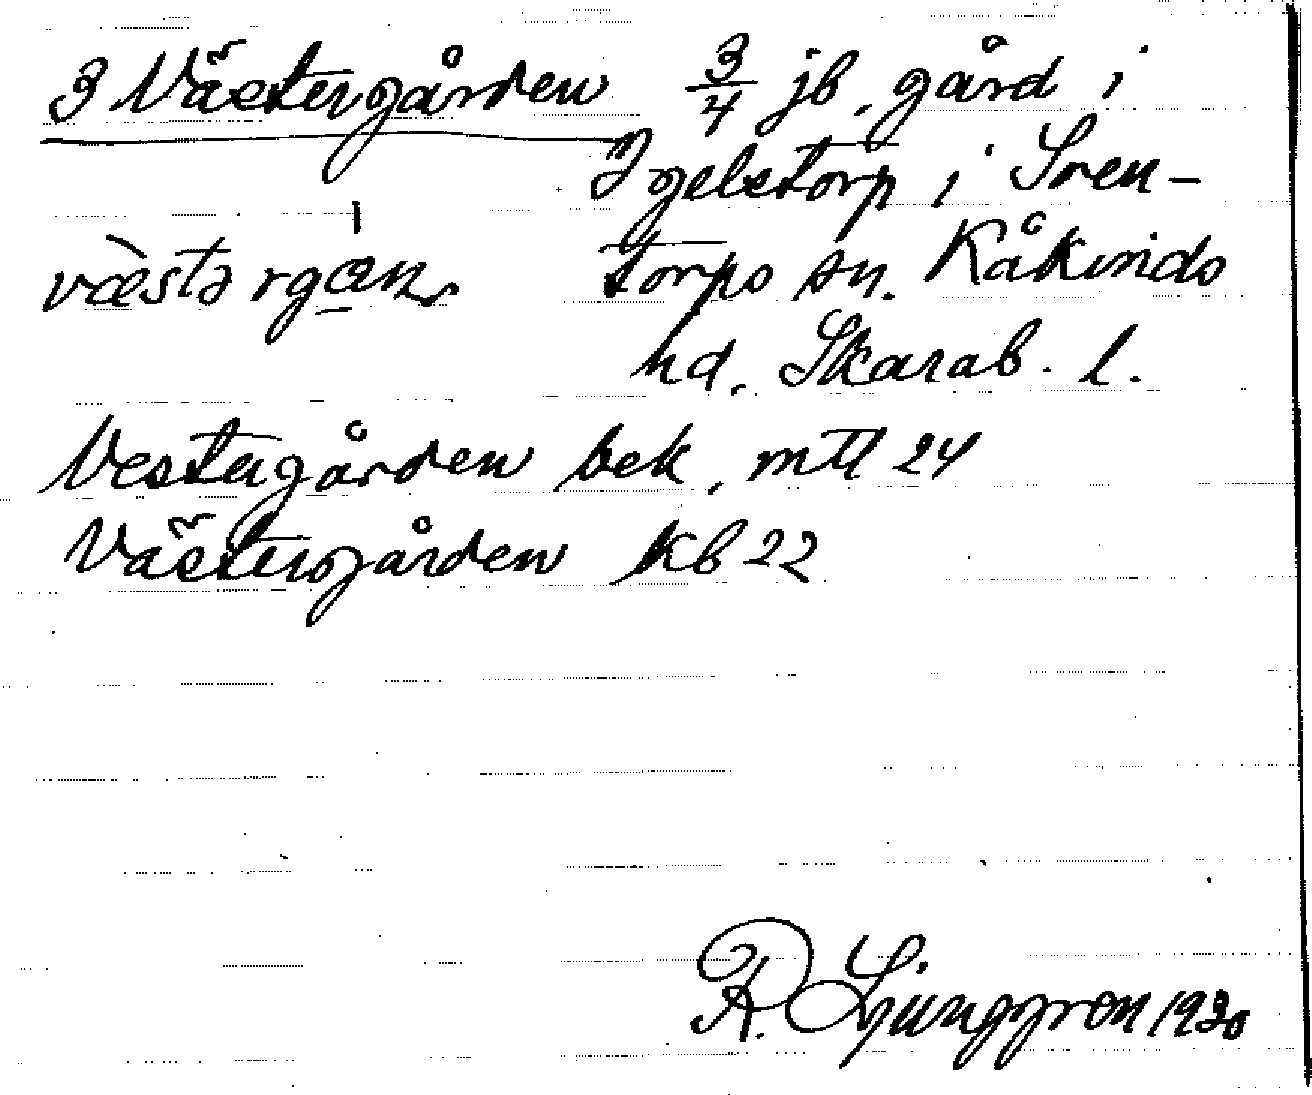 3 Västergården 3/4 jb. gård i
Igelstorp i Sven-
torps sn. Kåkinds
hd. Skarab. l.
Vestergården bek. mtl 24
Västergården kb 22
R. Ljunggren 1930